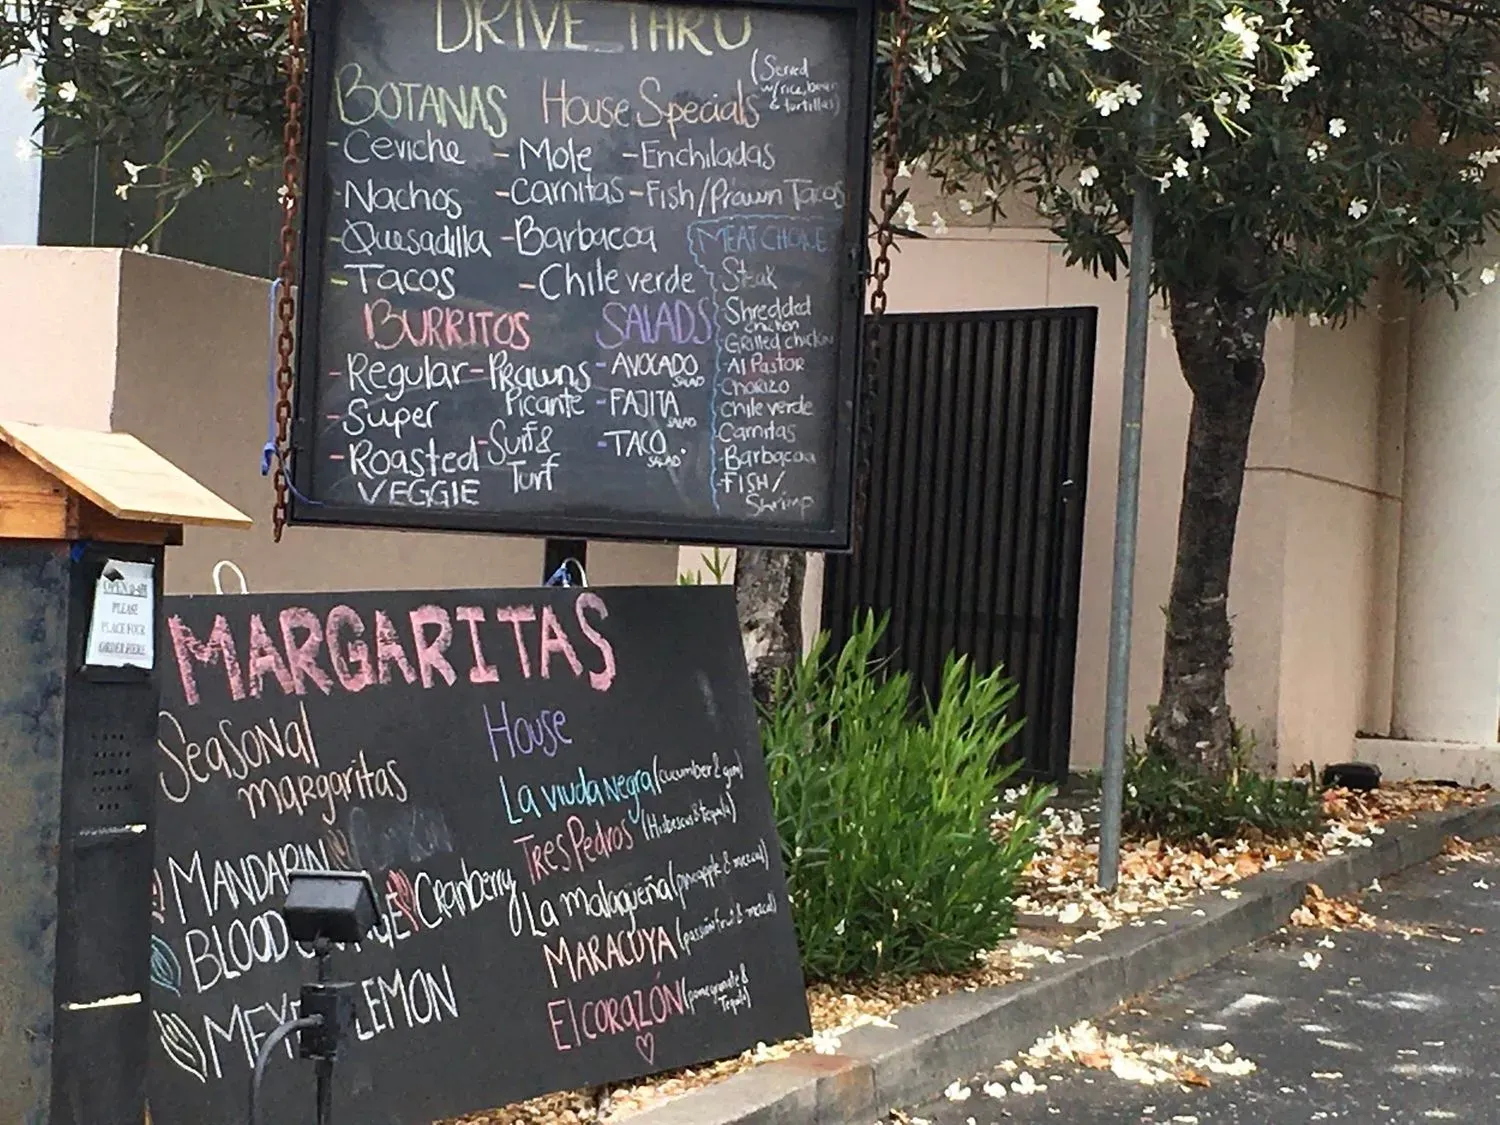 DRIVE THRU
BOTANAS
- Ceviche
- Nachos
- Quesadilla
- Tacos
House Specials
(Served
w/rice, beans
& tortillas)
- Mole
- Carnitas
- Barbacoa
- Chile verde
- Enchiladas
- Fish/Prawn Tacos
BURRITOS
- Regular
- Super
- Roasted
VEGGIE
- Prawns
Picante
- Surf &
Turf
SALADS
- AVOCADO
SALAD
- FAJITA
SALAD
- TACO
SALAD
MEAT CHOICE
Steak
Shredded
chicken
- Grilled chicken
- Al Pastor
- Chorizo
chile verde
Carnitas
- Barbacoa
- FISH/
Shrimp
PLEASE
PLACE YOUR
ORDER HERE
MARGARITAS
Seasonal
margaritas
MANDARIN
BLOOD
Cranberry
LEMON
House
La viuda negra (cucumber & gin)
Tres Pedros (Hibiscus & Tequila)
La malagueña (pineapple & mezcal)
MARACUYA (passion fruit & mezcal)
El CORAZÓN (pomegranate &
Tequila)